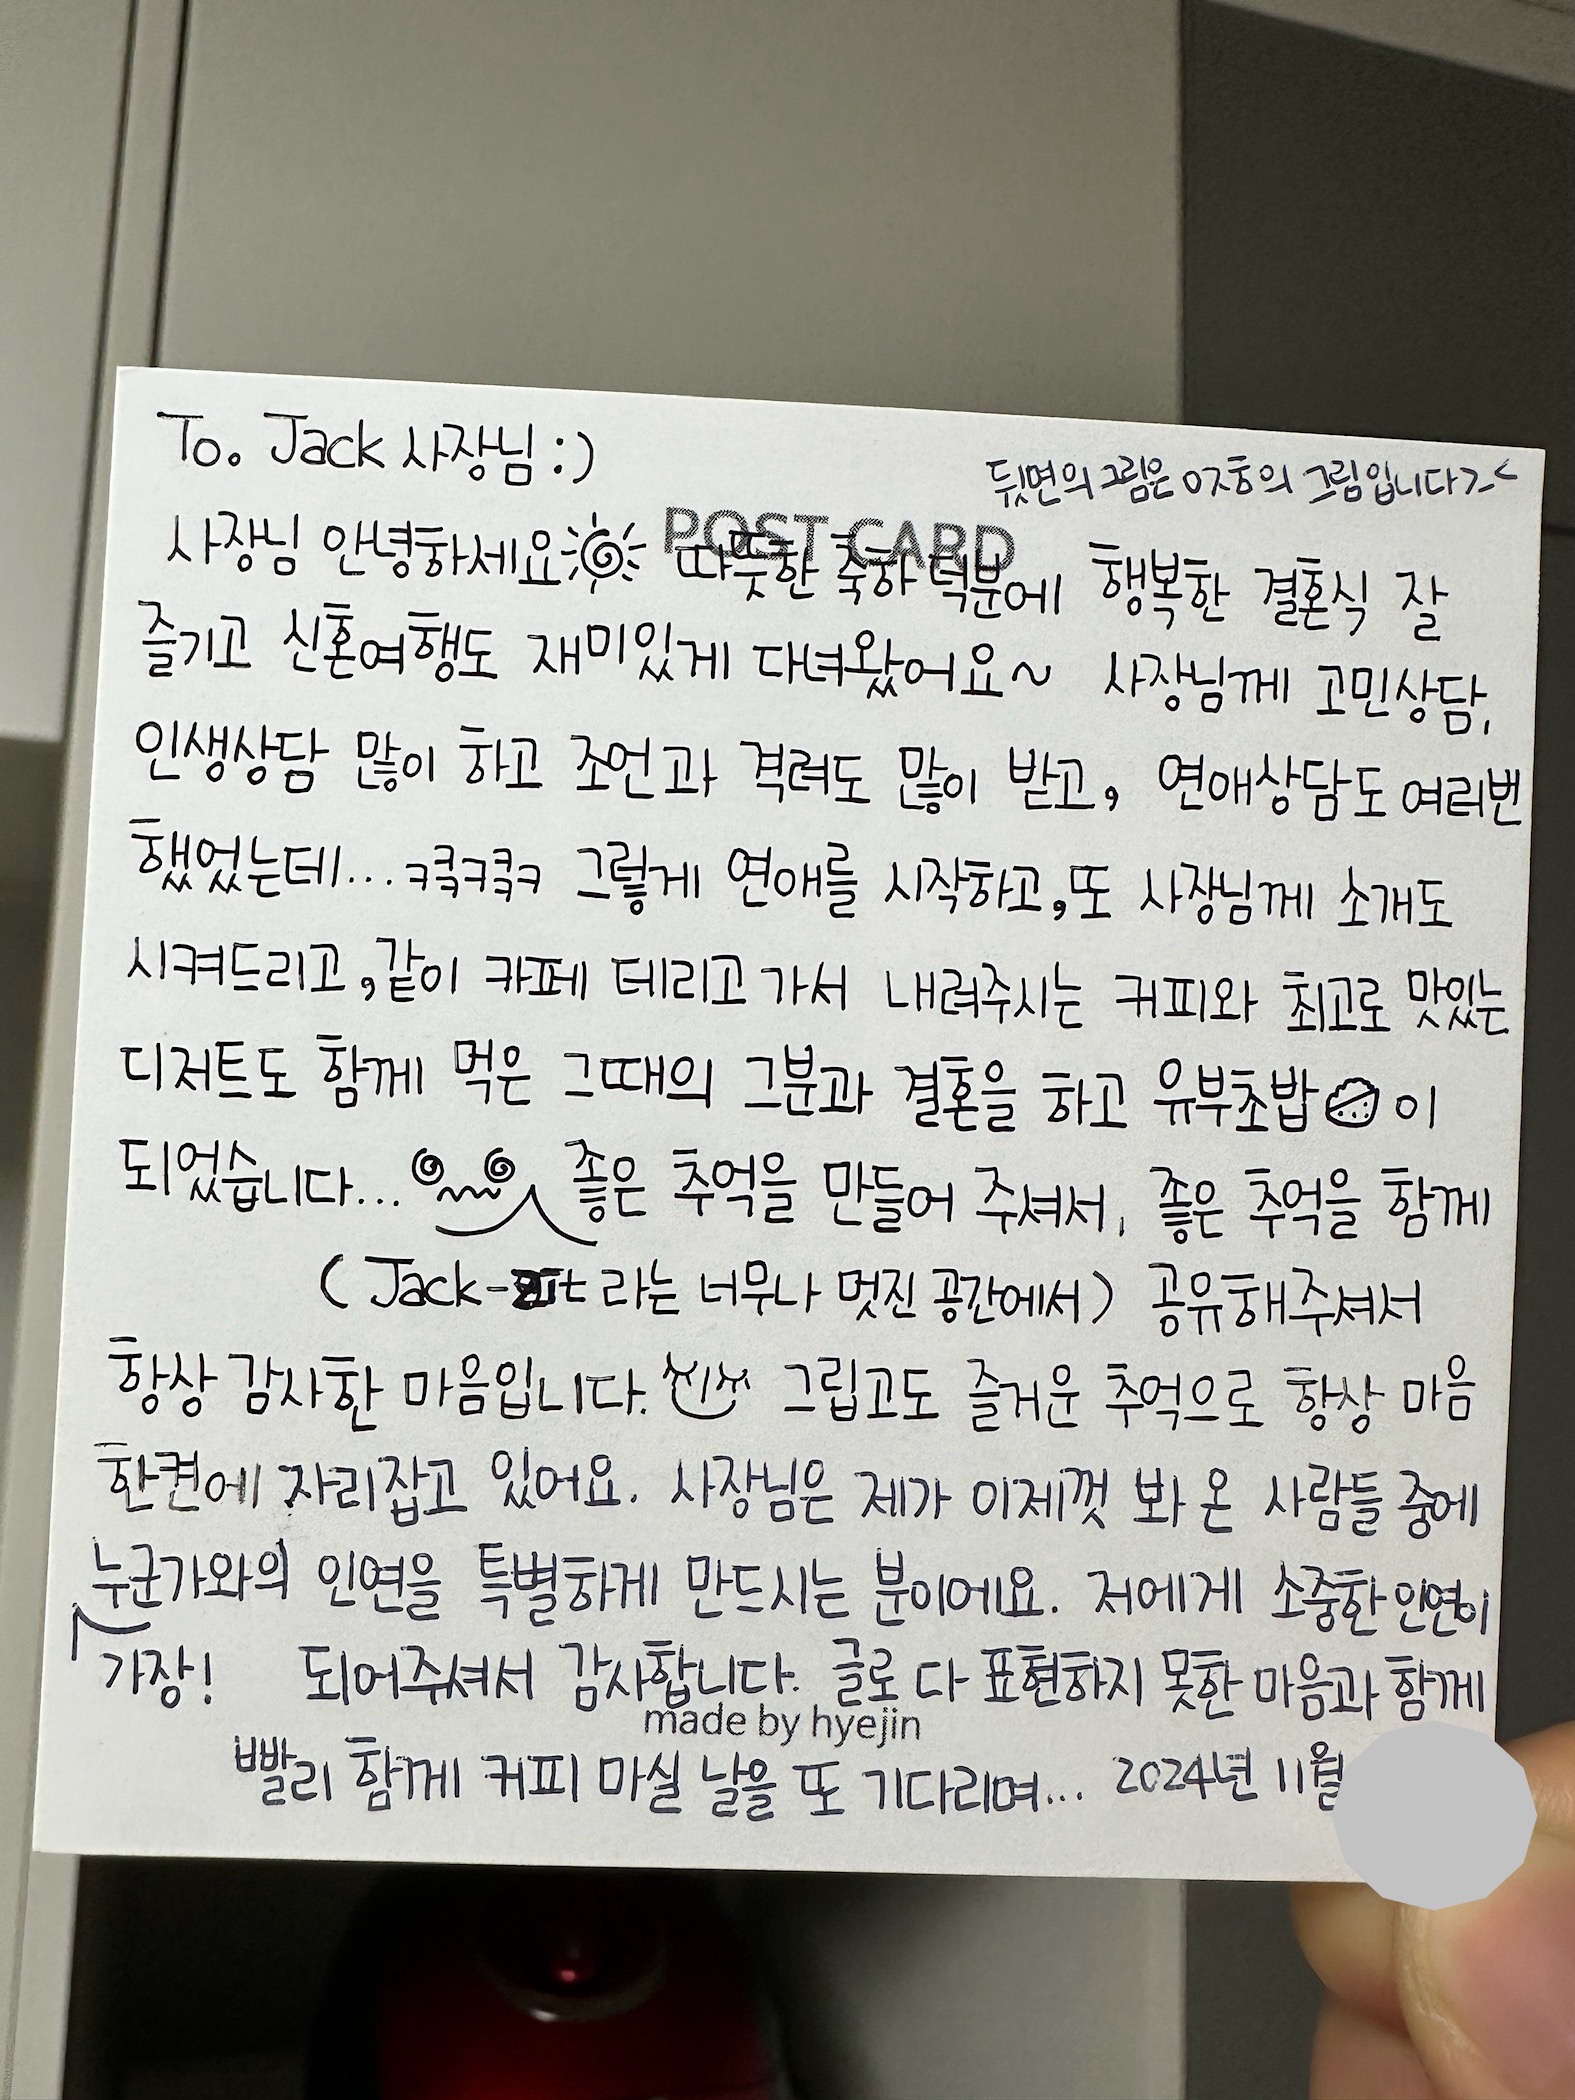 To. Jack 사장님 :)
뒷면의 그림은 0자호의 그림입니다>_<
POST CARD
사장님 안녕하세요 따뜻한 축하 덕분에 행복한 결혼식 잘
즐기고 신혼여행도 재미있게 다녀왔어요~ 사장님께 고민상담,
인생상담 많이 하고 조언과 격려도 많이 받고, 연애상담도 여러번
했었는데...ㅋ킄ㅋ킄ㅋ 그렇게 연애를 시작하고, 또 사장님께 소개도
시켜드리고, 같이 카페 데리고 가서 내려주시는 커피와 최고로 맛있는
디저트도 함께 먹은 그때의 그분과 결혼을 하고 유부초밥 이
되었습니다... 좋은 추억을 만들어 주셔서, 좋은 추억을 함께
( Jack- 라는 너무나 멋진 공간에서) 공유해주셔서
항상 감사한 마음입니다. 그립고도 즐거운 추억으로 항상 마음
한켠에 자리잡고 있어요. 사장님은 제가 이제껏 봐 온 사람들 중에
누군가와의 인연을 특별하게 만드시는 분이에요. 저에게 소중한 인연이
가장! 되어주셔서 감사합니다. 글로 다 표현하지 못한 마음과 함께
made by hyejin
빨리 함께 커피 마실 날을 또 기다리며... 2024년 11월